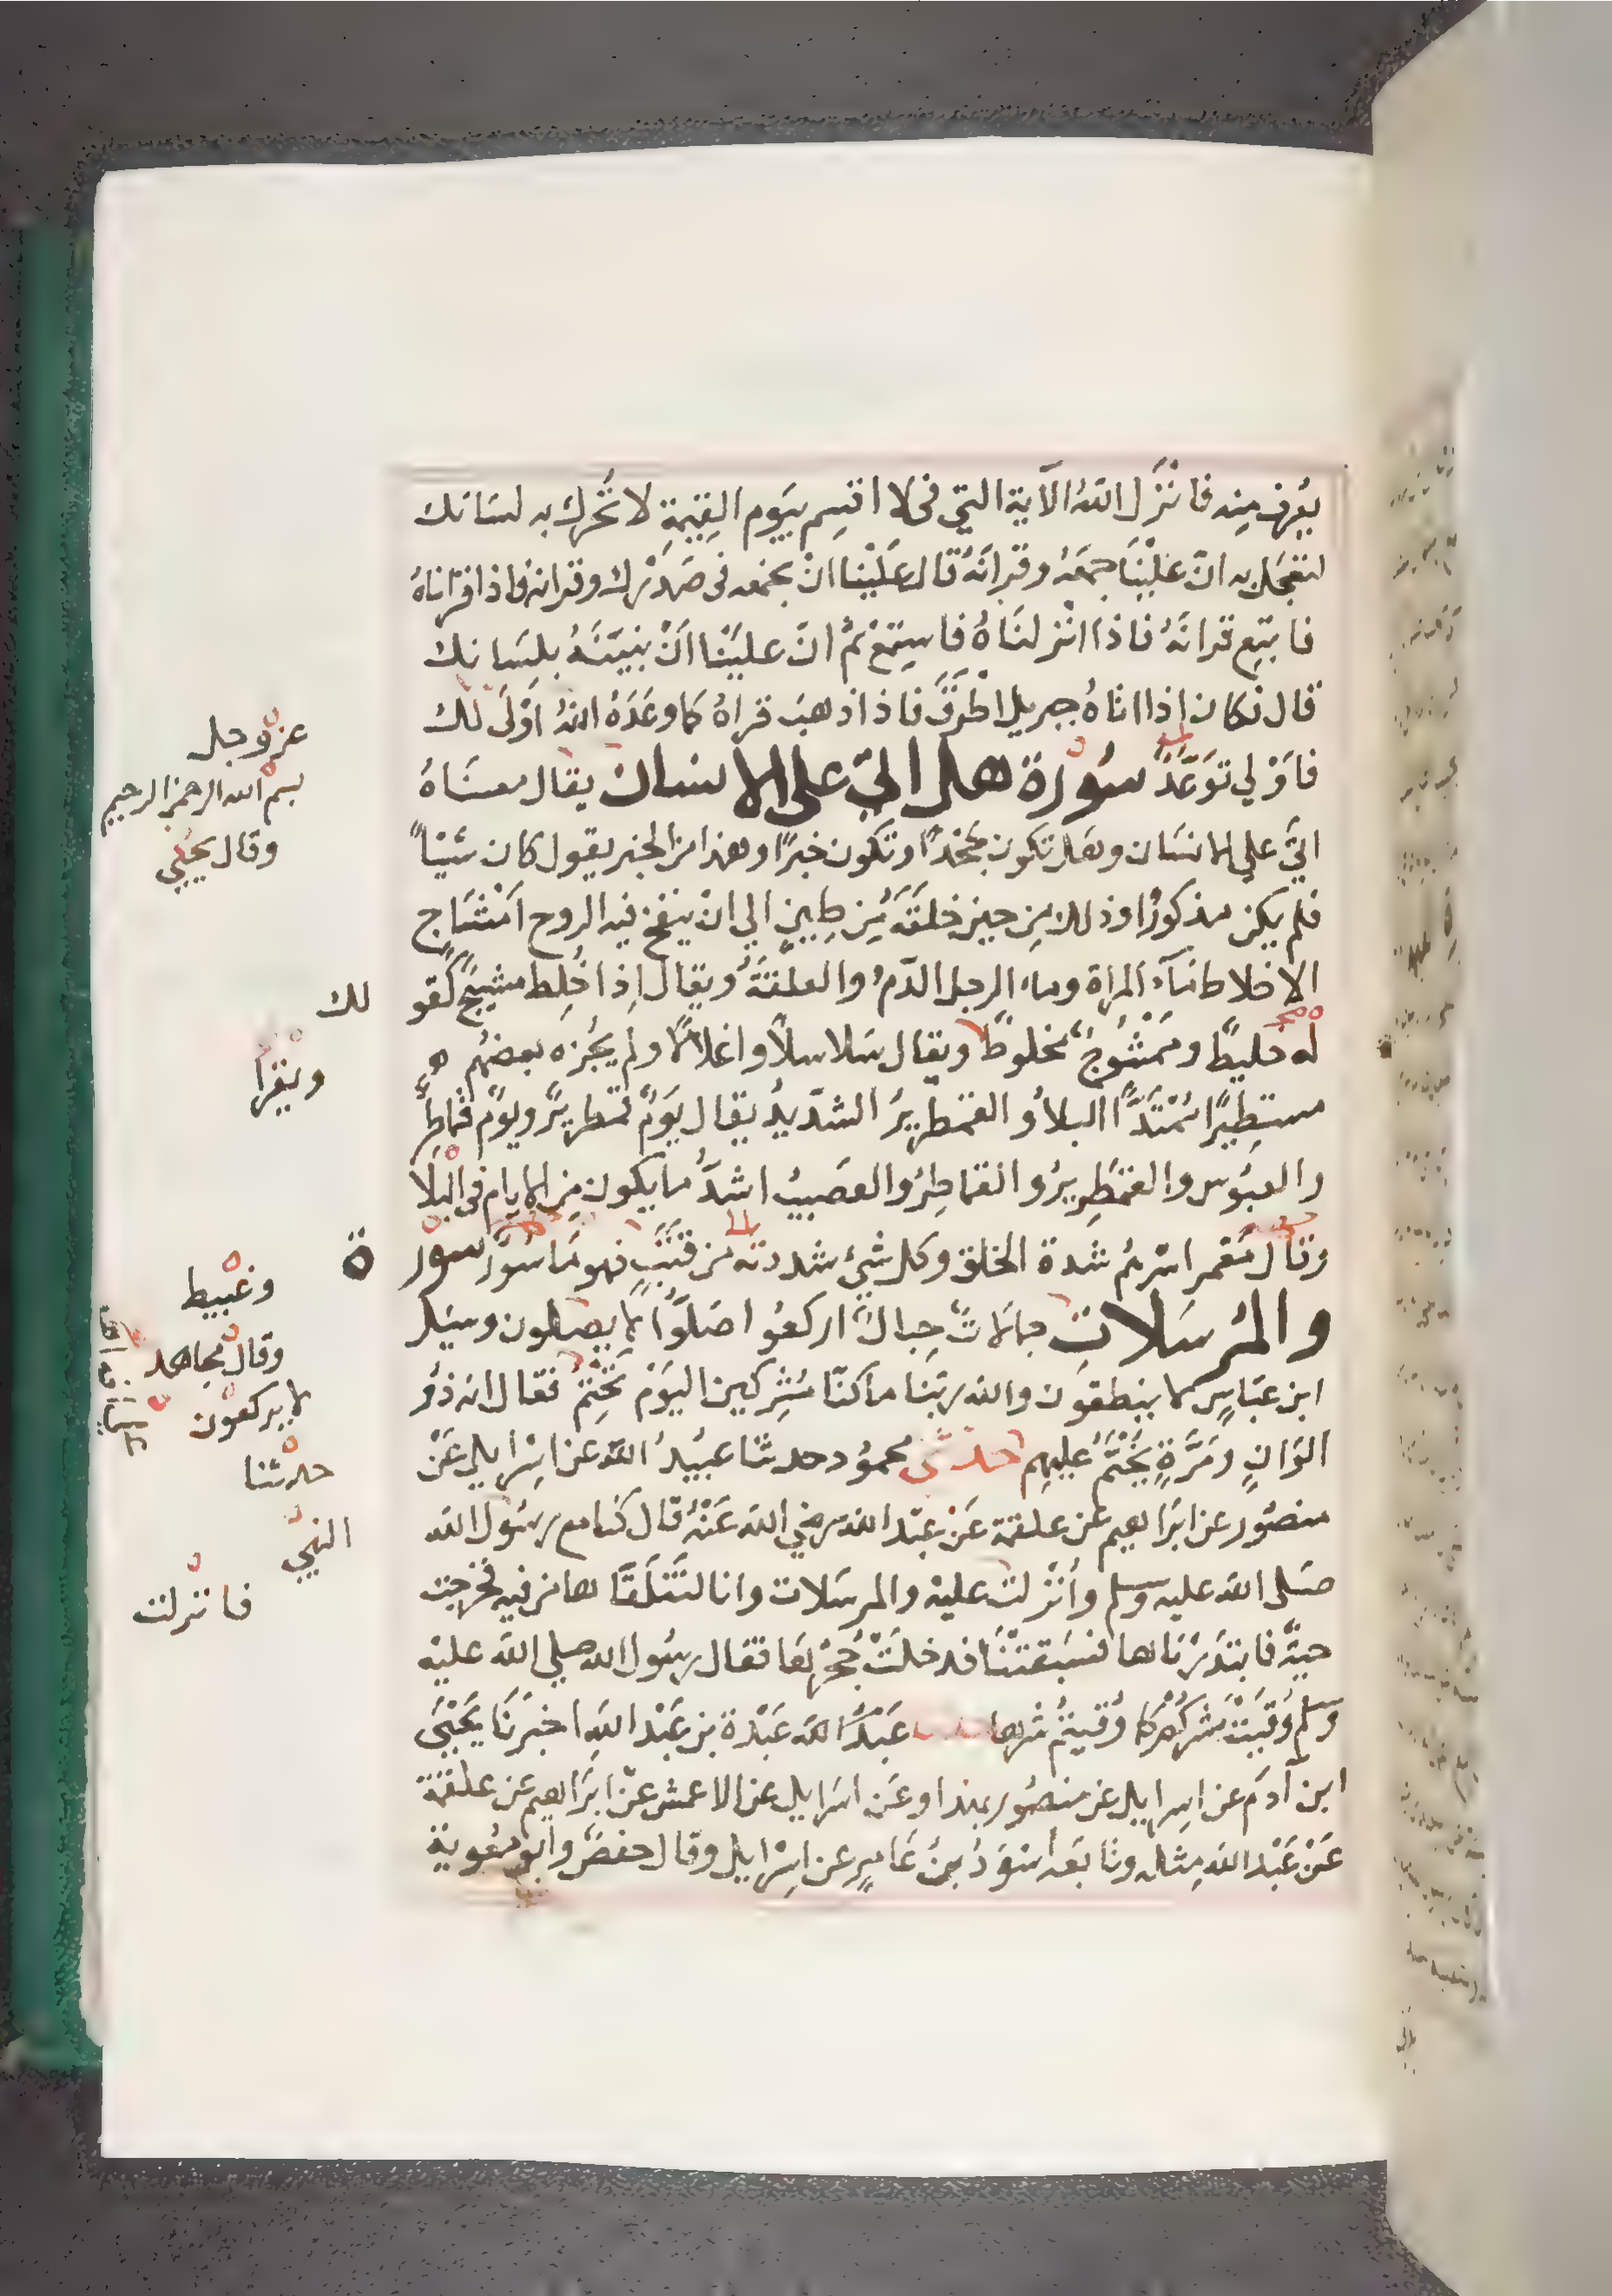 يعرف منه فانزل الله الآية التي فى لا اقسم بيوم القيمة لا تحرك به لسانك
لتعجل به ان علينا جمعه وقرانه قال علينا ان نجمعه فى صدرك وقرانه فاذا قرآناه
فاتبع قرانه فاذا انزلناه فاستمع ثم ان علينا ان نبينه بلسانك
قال فكان اذا اتاه جبريل اطرق فاذا ذهب قراه كما وعده الله اولى لك
فاولي توعد سورة هل اتي على الانسان يقال معناه
اتي علي الانسان وهل تكون جحدا وتكون خبرا وهذا من الخبر يقول كان شيئا
فلم يكن مذكورا وذلك من حين خلقه من طين الي ان ينفخ فيه الروح امشاج
الاخلاط ماء المراة وماء الرجل الدم والعلقة ويقال اذا خلط مشيج كقو لك
له خليط وممشوج مخلوط ويقال سلاسلا واغلالا ولم يجزه بعضهم
مستطيرا ممتدا البلاء والقمطرير الشديد يقال يوم قمطرير ويوم قماطر
والعبوس والقمطرير والقماطر والعصيب اشد ما يكون من الايام فى البلا
وقال معمر اسرهم شدة الخلق وكل شيء شددته من قتب فهو ماسور سور ة
والمرسلات جمالات حبال اركعوا صلوا لا يصلون وسيل
ابن عباس لا ينطقون والله ربنا ما كنا مشركين اليوم نختم فقال انه ذو
الوان ومرة يختم عليهم حدثني محمود حدثنا عبيد الله عن اسرايل عن
منصور عن ابراهيم عن علقمة عن عبد الله رضي الله عنه قال كنا مع رسول الله
صلى الله عليه وسلم وأنزلت عليه والمرسلات وانا لنتلقاها من فيه فخرجت
حية فابتدرناها فسبقتنا فدخلت جحرها فقال رسول الله صلي الله عليه
وسلم وقيت شركم كما وقيتم شرها عبد الله عبدة بن عبد الله اخبرنا يحيى
ابن آدم عن اسرايل عن منصور بهذا وعن اسرايل عن الاعمش عن ابراهيم عن علقمة
عن عبد الله مثله وتابعه اسود بن عامر عن اسرايل وقال حفص وابو معوية
عز وجل
بسم الله الرحمن الرحيم
وقال يحيي
ويقرا
وغبيط
وقال مجاهد
لا يركعون
حدثنا
النبي
فانزلت